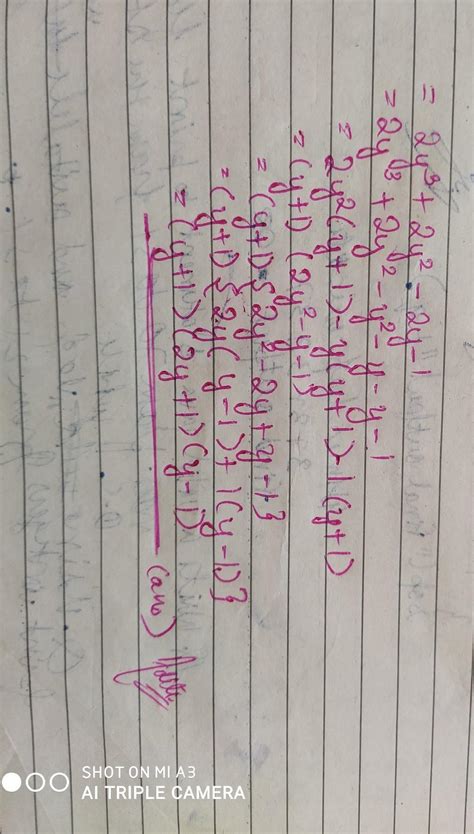 = 2y³ + 2y² - 2y - 1
= 2y³ + 2y² - y² - y - y - 1
= 2y² (y+1) - y (y+1) - 1 (y+1)
= (y+1) (2y² - y - 1)
= (y+1) { 2y² - 2y + y - 1 }
= (y+1) { 2y (y - 1) + 1 (y - 1) }
= (y+1) (2y+1) (y - 1)
(ans)
SHOT ON MI A3
AI TRIPLE CAMERA